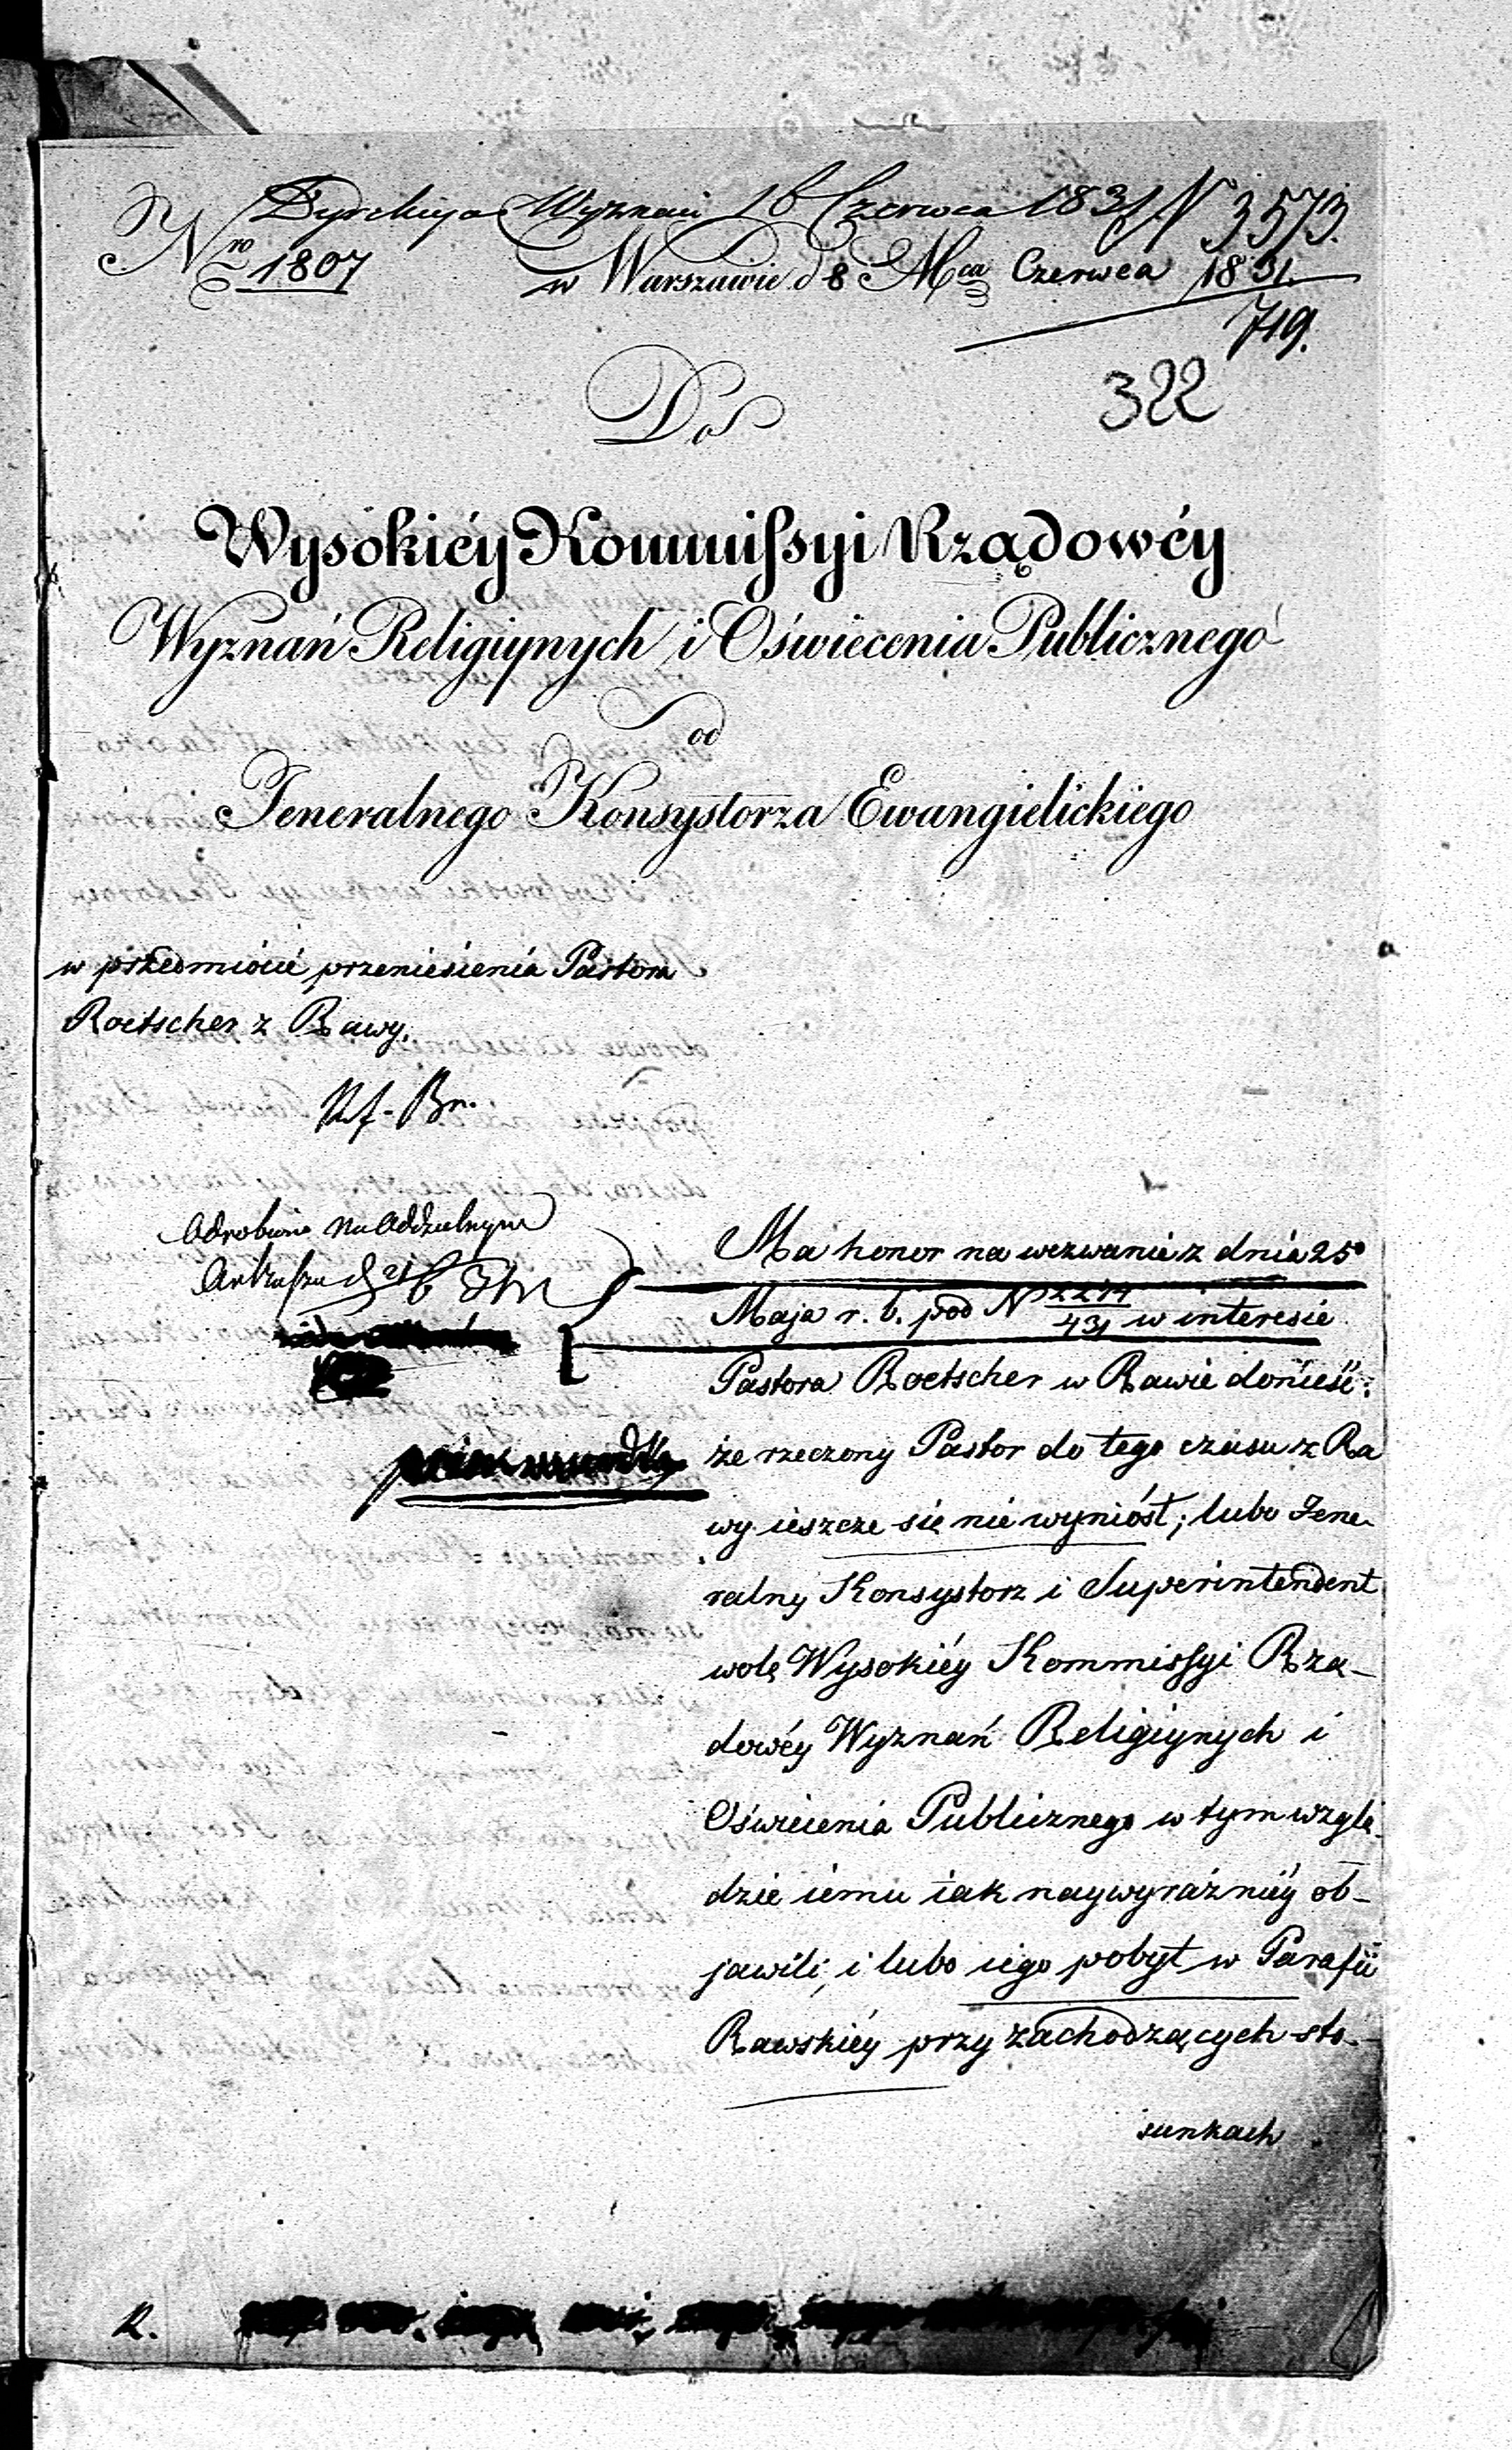 Dyrekcya Wyznań 16 Czerwca 1831 N 3573.
Nro 1807 w Warszawie d 8 Mca Czerwca 1831.
719.
322
Do
Wysokiéy Kommissyi Rządowéy
Wyznań Religiynych i Oświecenia Publicznego
od
Jeneralnego Konsystorza Ewangielickiego
w przedmiocie przeniesienia Pastora
Roetscher z Rawy.
Odrobiono na oddzielnym
Arkuszu
Ma honor na wezwanie z dnia 25º
Maja r. b. pod N 2214/431 w interesie
Pastora Roetscher w Rawie donieść:
że rzeczony Pastor do tego czasu z Ra
wy ieszcze się nie wyniósł; lubo Jene-
ralny Konsystorz i Superintendent
wolę Wysokiéy Kommissyi Rzą-
dowéy Wyznań Religiynych i
Oświecenia Publicznego w tym wzglę-
dzie iemu iak naywyraźniéy ob-
jawili, i lubo iego pobyt w Parafii
Rawskiéy przy zachodzących sto-
sunkach
R.